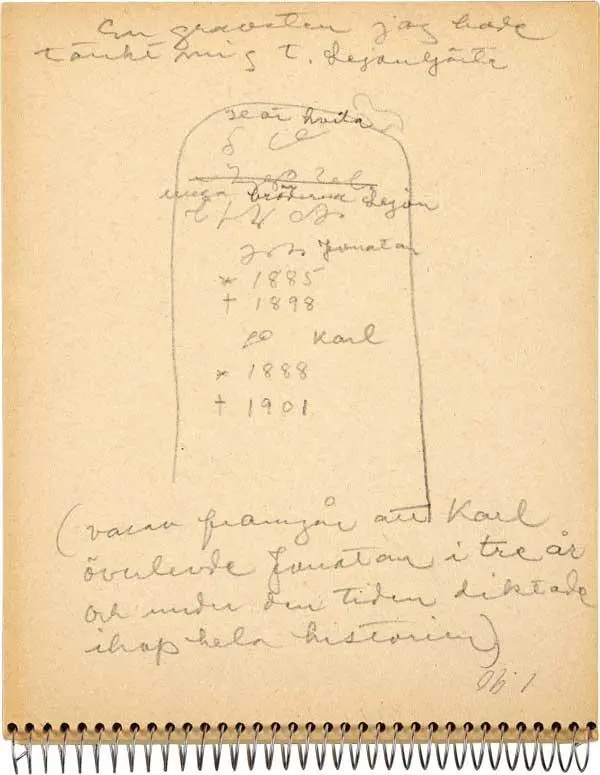 En gravsten jag hade
tänkt mig t. Lejonhjärta
hvila
unga bröderna Lejon
Jonatan
* 1885
† 1898
Karl
* 1888
† 1901
(varav framgår att Karl
överlevde Jonatan i tre år
och under den tiden diktade
ihop hela historien)